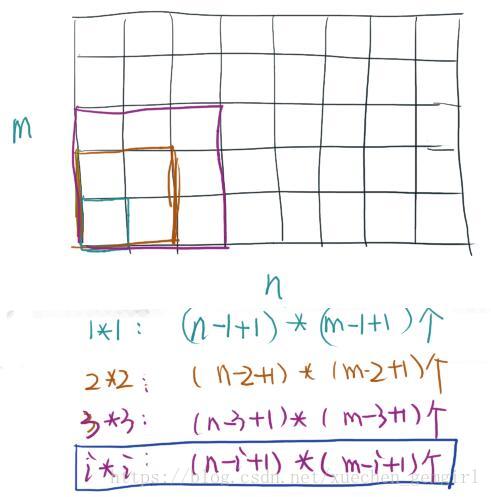 m
n
1*1: (n-1+1)*(m-1+1)个
2*2: (n-2+1)*(m-2+1)个
3*3: (n-3+1)*(m-3+1)个
i*i: (n-i+1)*(m-i+1)个
https://blog.csdn.net/xuechen_gemgirl